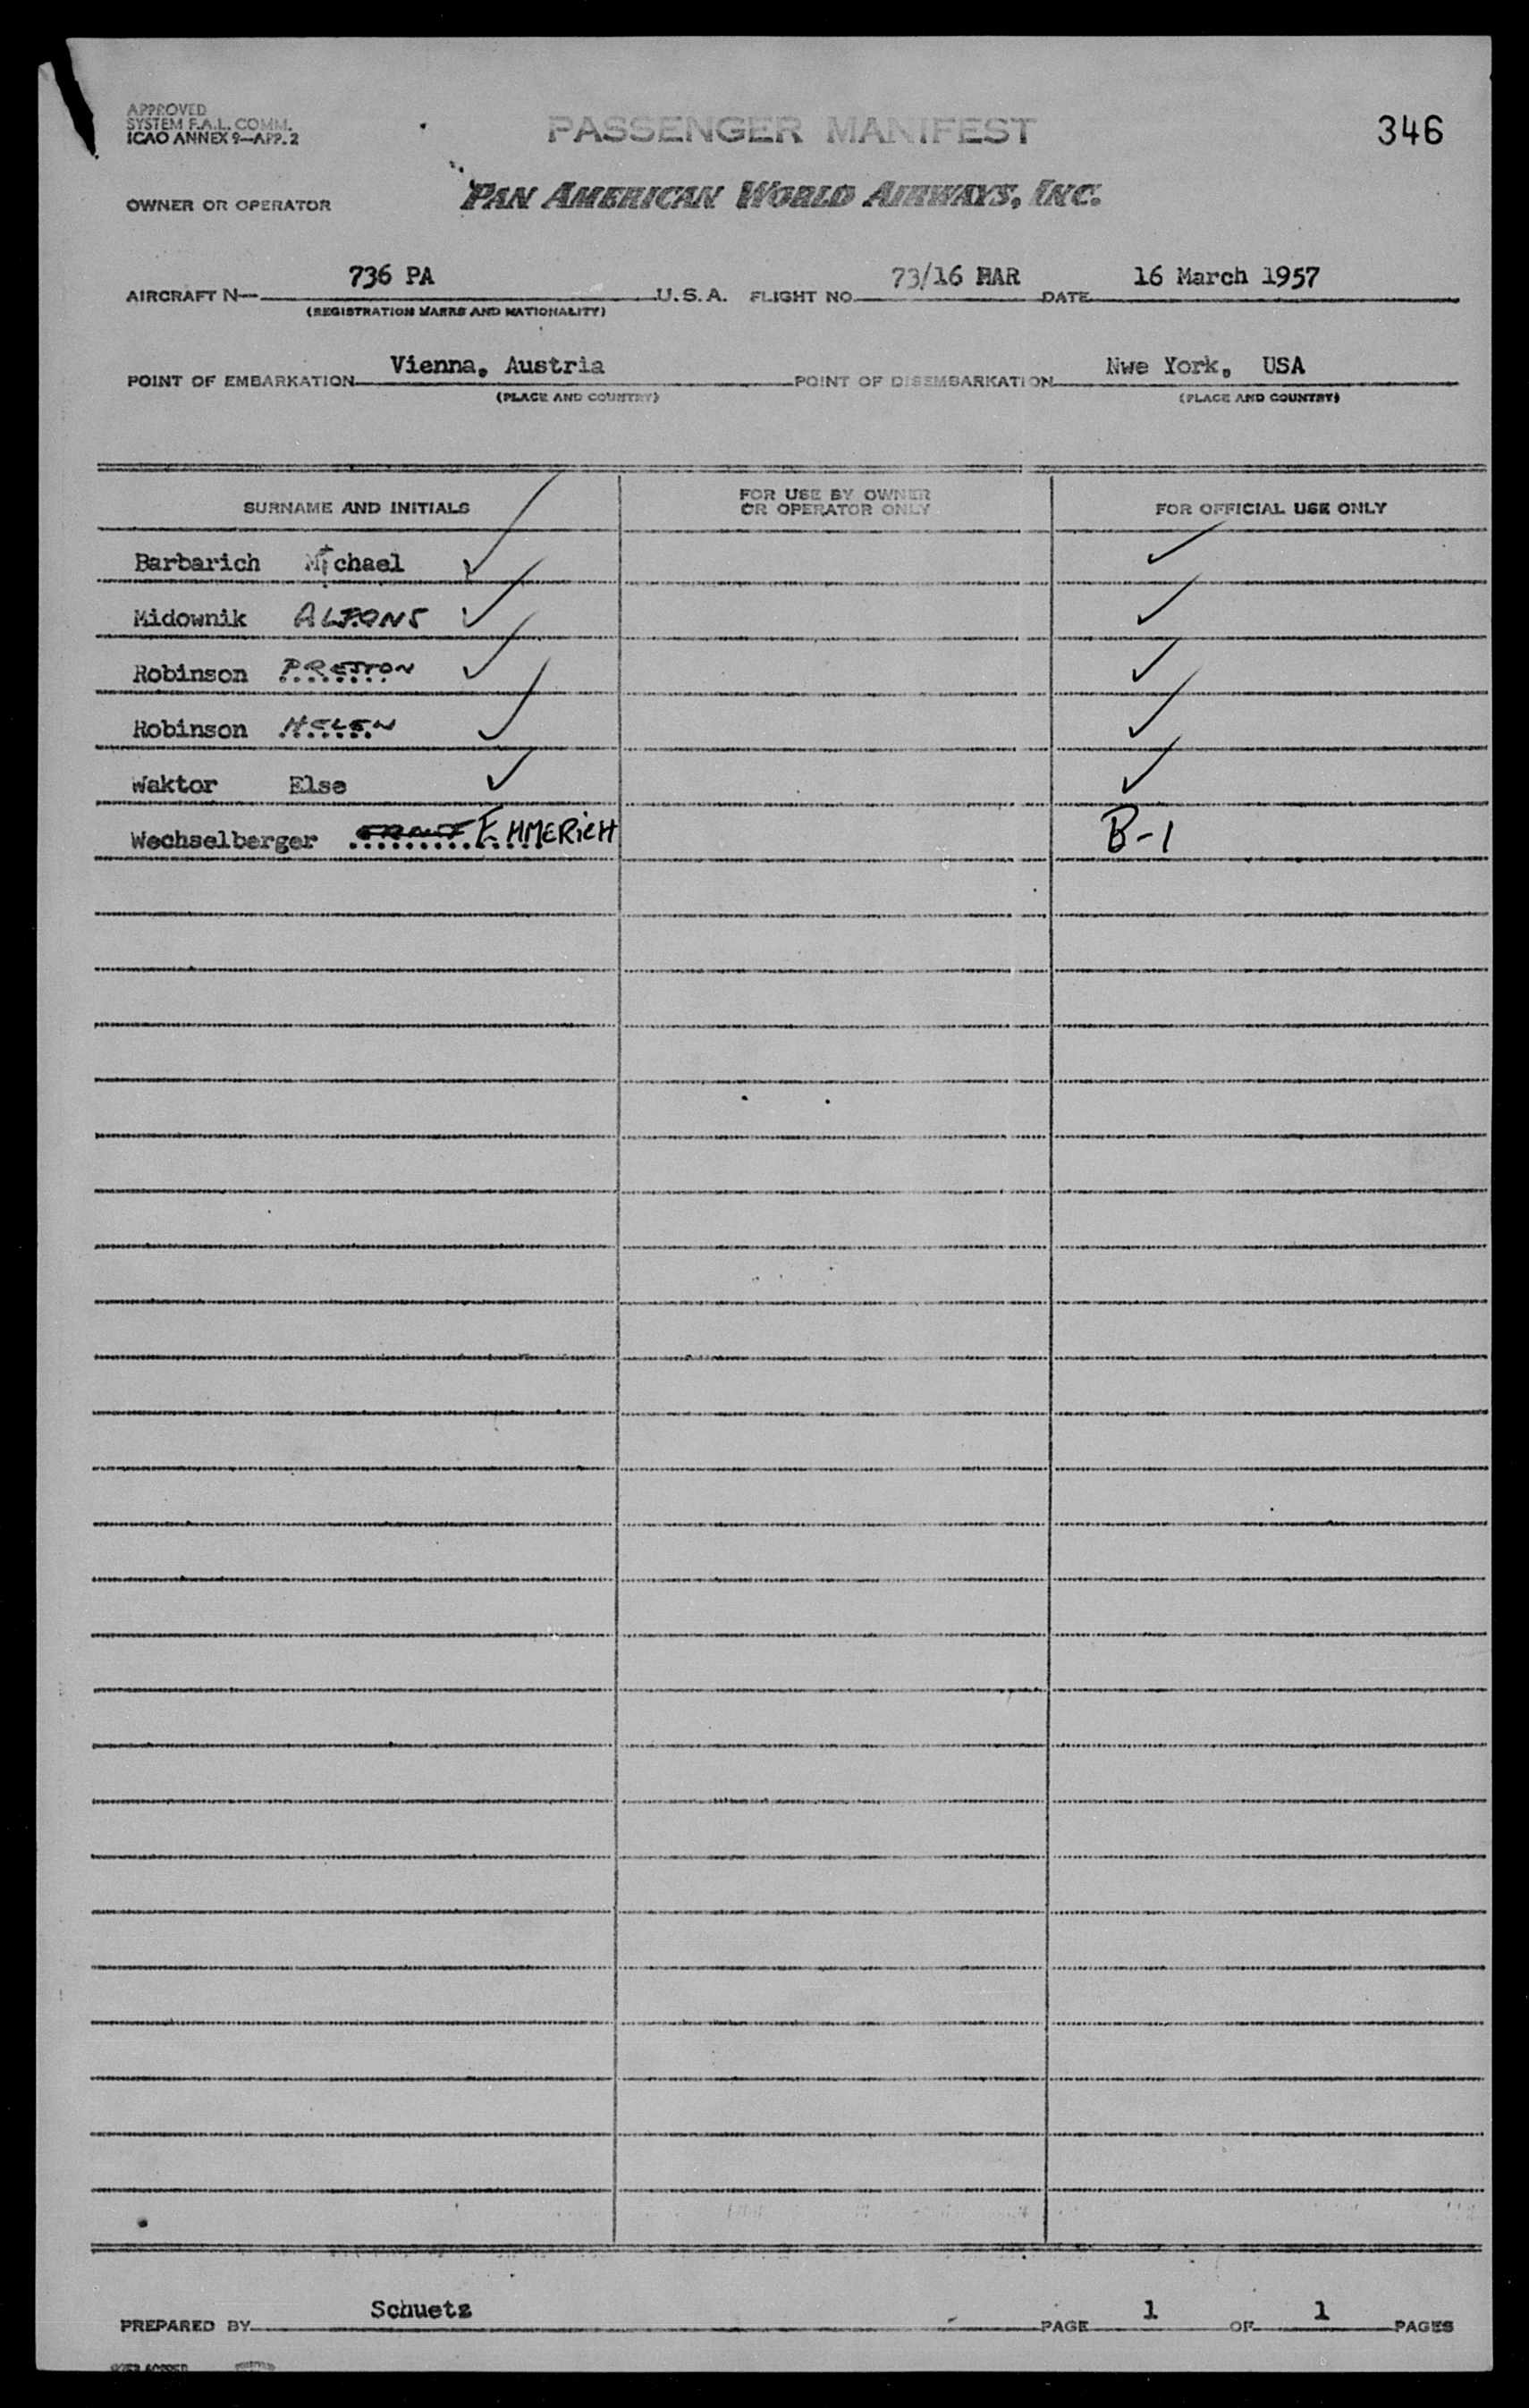 APPROVED
SYSTEM F.A.L. COMM.
ICAO ANNEX 9—APP. 2
PASSENGER MANIFEST
346
OWNER OR OPERATOR
PAN AMERICAN WORLD AIRWAYS, INC.
AIRCRAFT N— 736 PA U.S.A. FLIGHT NO. 73/16 MAR DATE 16 March 1957
(REGISTRATION MARKS AND NATIONALITY)
POINT OF EMBARKATION Vienna, Austria POINT OF DISEMBARKATION Nwe York, USA
(PLACE AND COUNTRY) (PLACE AND COUNTRY)
SURNAME AND INITIALS
FOR USE BY OWNER
OR OPERATOR ONLY
FOR OFFICIAL USE ONLY
Barbarich Michael ✓ ✓
Midownik ALFONS ✓ ✓
Robinson PRESTON ✓ ✓
Robinson HELEN ✓ ✓
Waktor Else ✓ ✓
Wechselberger EMMERICH B-1
PREPARED BY Schuetz PAGE 1 OF 1 PAGES